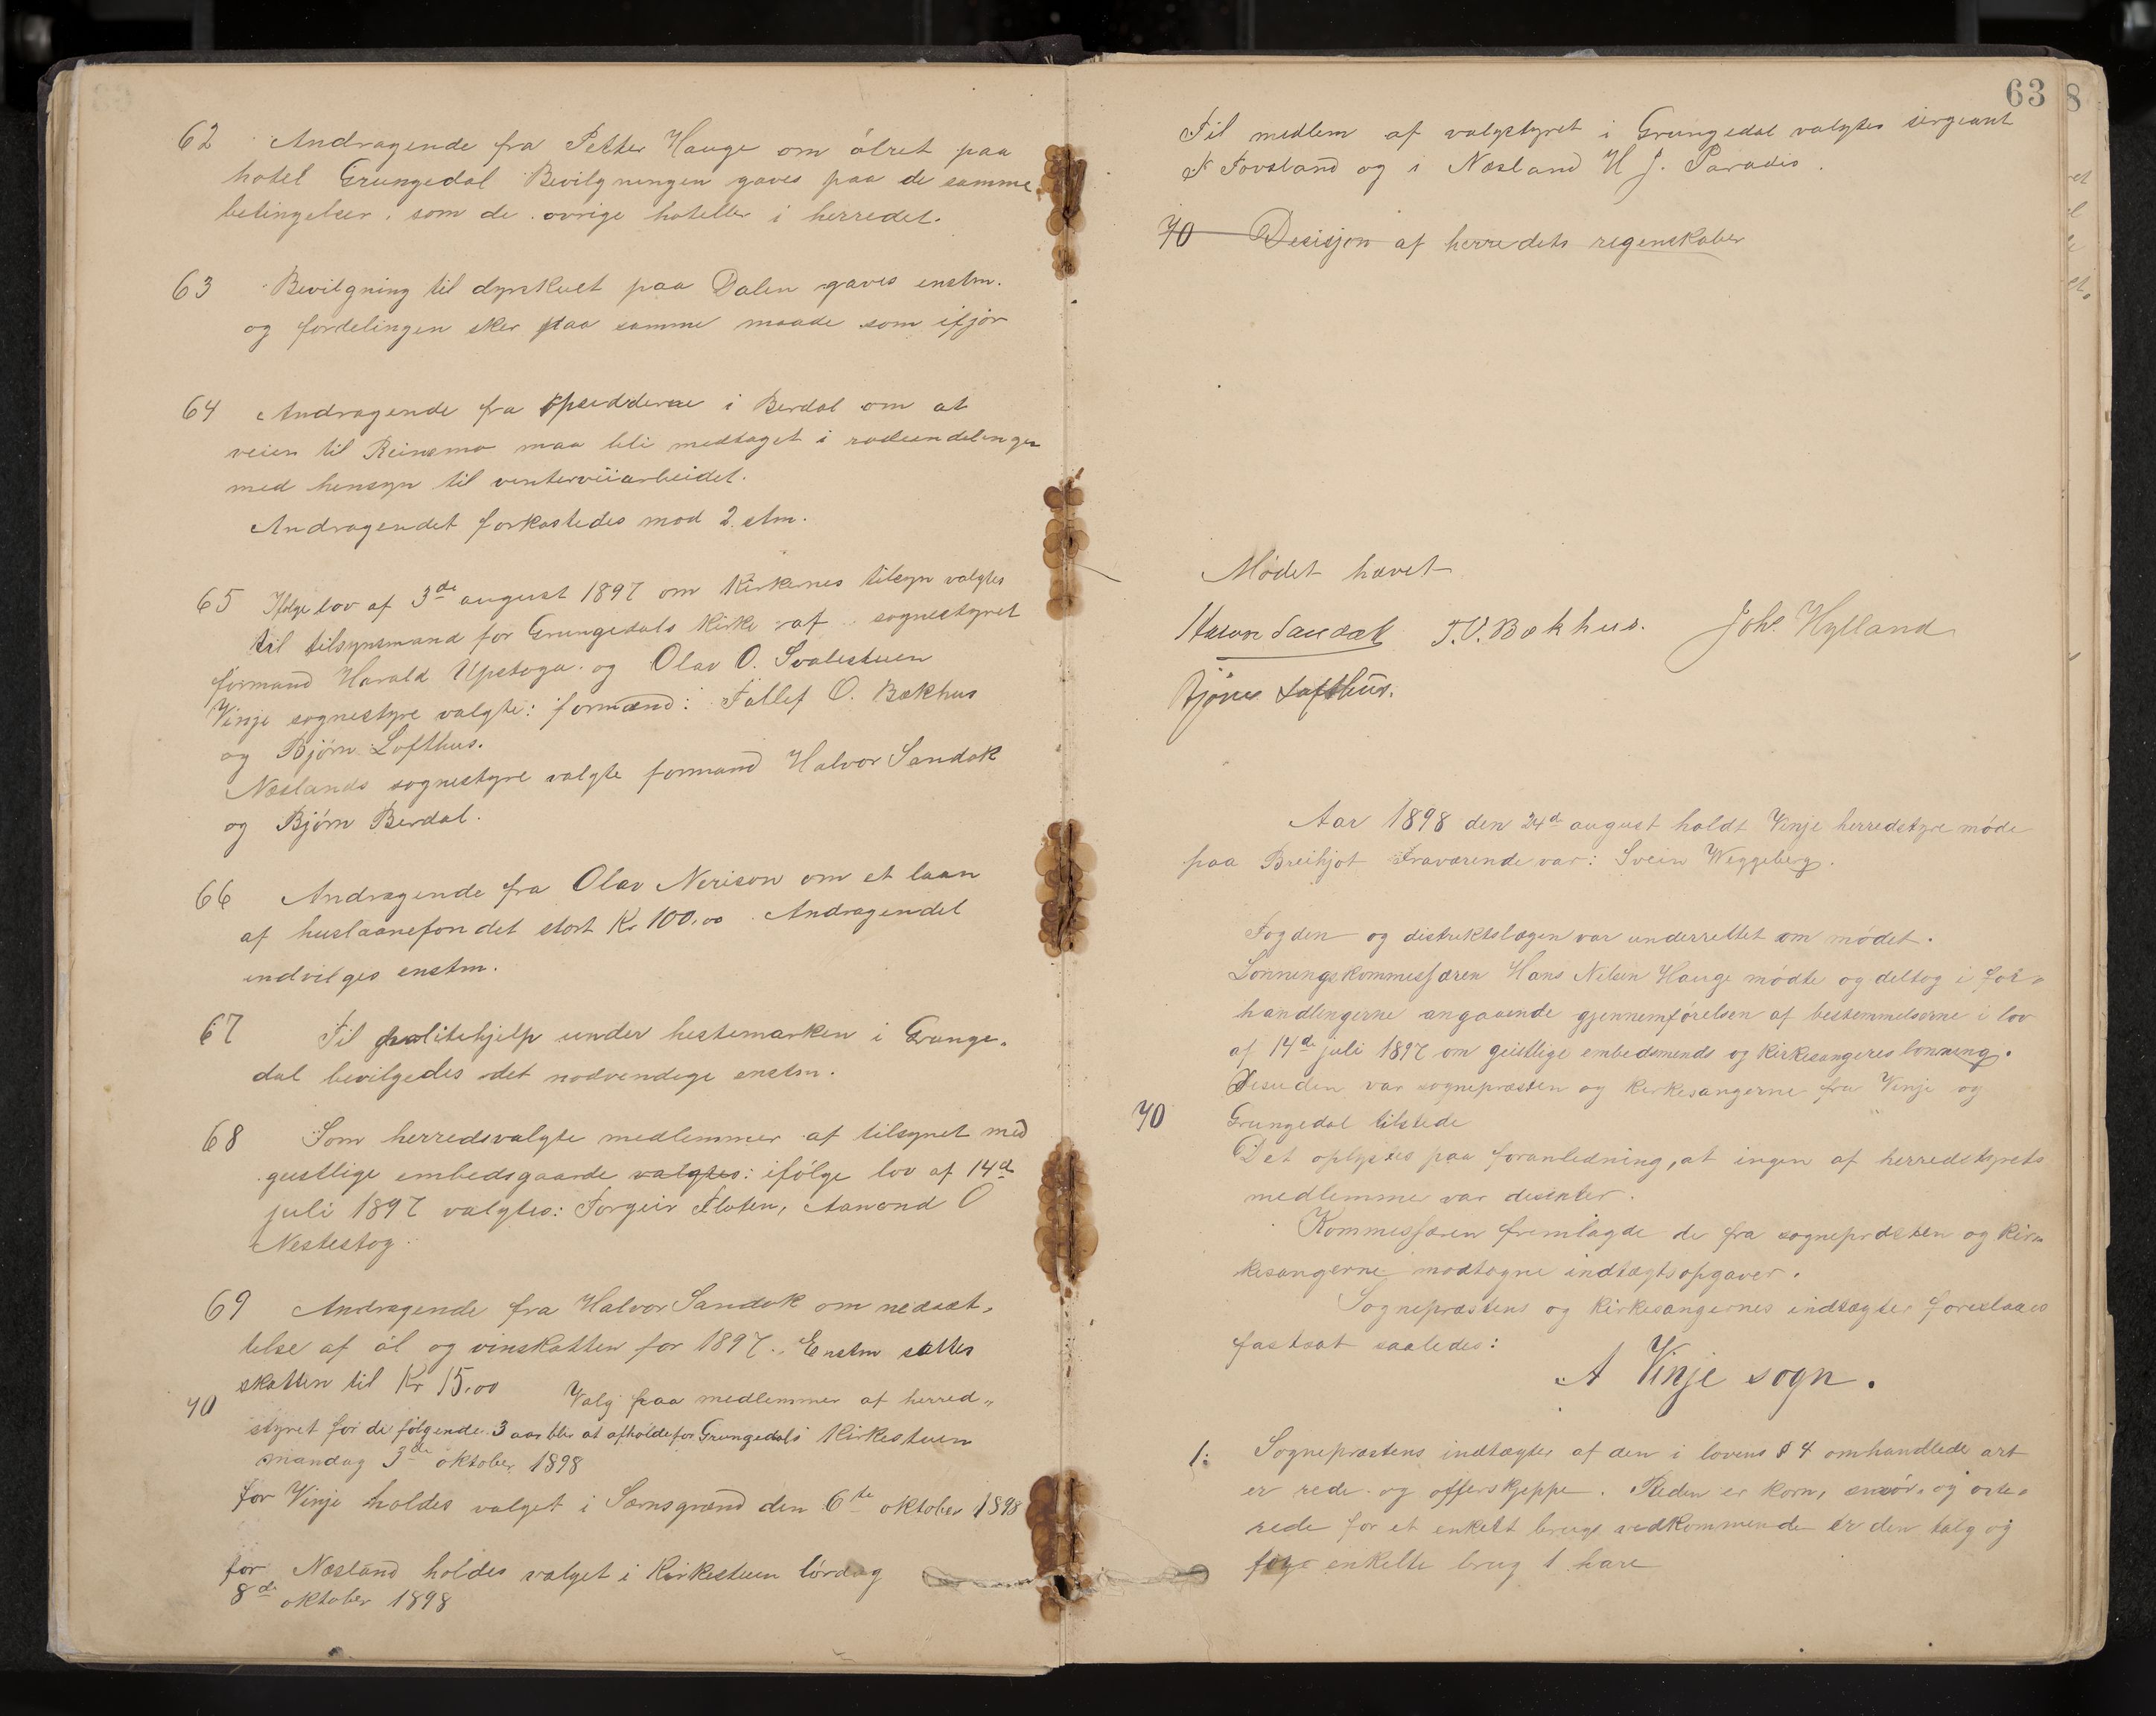 62 Andragende fra Petter Hauge om ólret paa
hotel Grungedal Bevilgningen gaves paa de samme
betingelser som de ovrige hoteller i herredet.
63 Bevilgning til dyrskuet paa Dalen gaves enstm.
og fordelingen sker paa samme maade som ifjor
64 Andragende fra opsidderne i Berdal om at
veien til Reinsmo maa bli medtaget i rodeindelingen
med hensyn til vinterveiarbeidet.
Andragendet forkastedes mod 2 stm.
65 Ifølge lov af 3de august 1897 om Kirkernes tilsyn valgtes
til tilsynsmænd for Grungedals Kirke af sognestyret
formand Harald Upstoga og Olav O. Svalestuen
Vinje sognestyre valgte: formænd: Tallef O. Bækhus
og Bjórn Lofthus.
Næslands sognestyre valgte formand Halvor Sandok
og Bjórn Berdal.
66 Andragende fra Olav Nerison om et laan
af huslaanefondet stort Kr 100,00 Andragendet
indvilges enstm.
67 Til politihjelp under hestemarken i Grunge„
dal bevilgedes det nodvendige enstm.
68 Som herredsvalgte medlemmer af tilsynet med
geistlige embedsgaarde valgtes: ifólge lov af 14de
juli 1897 valgtes: Torgeir Floten, Aamond O
Nestestog
69 Andragende fra Halvor Sandok om nedsæt„
telse af ól og vinskatten for 1897. Enstm sættes
skatten til Kr 15,00
70 Valg paa medlemmer af herred„
styret for de fólgende 3 aar blir at afholde for Grungedal i Kirkestuen
mandag 3de oktober 1898
for Vinje holdes valget i Særnsgrænd den 6te oktober 1898
for Næsland holdes valget i Kirkestuen lórdag
8de oktober 1898
63
Til medlem af valgstyret i Grungedal valgtes sergeant
K Tovsland og i Næsland H J. Paradis.
70 Desisjon af herredets regenskaber
Módet hævet
Halvor Sandok T. O. Bækhus. Johs. Hylland
Bjórn Lofthus.
Aar 1898 den 24de august holdt Vinje herredstyre móde
paa Breihjot Fraværende var: Svein Weggeberg.
Fogden og distriktslægen var underrettet om módet.
Lonningskommissæren Hans Nelsen Hauge módte og deltog i for„
handlingerne angaaende gjennemfórelsen af bestemmelserne i lov
af 14de juli 1897 om geistlige embedsmænds og Kirkesangeres lonning.
Desuden var sognepræsten og Kirkesangerne fra Vinje og
70 Grungedal tilstede
Det oplystes paa foranledning, at ingen af herredstyrets
medlemmer var desenter.
Kommissæren fremlagde de fra sognepræsten og kir„
kesangerne modtagne indtægtsopgaver.
Sognepræstens og Kirkesangernes indtægter foreslaaes
fastsat saaledes:
A Vinje sogn.
1: Sognepræstens indtægter af den i lovens § 4 omhandlede art
er rede og offerskjeppe. Reden er korn, smór- og oste„
rede for et enkelt brugs vedkommende er den talg og
enkelte brug 1 hare